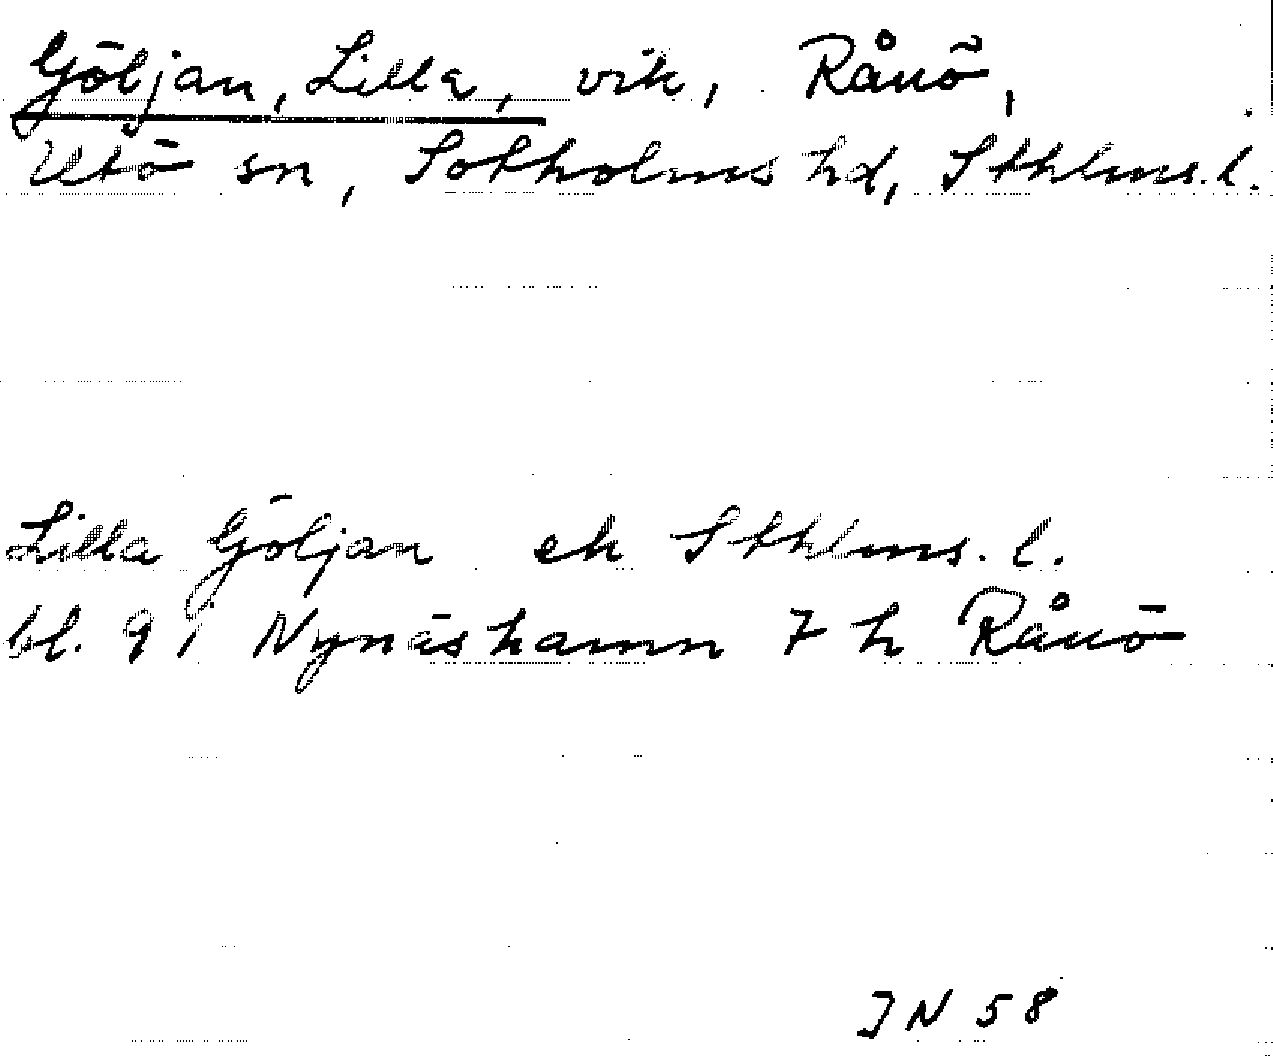 Göljan, Lilla, vik, Rånö,
Utö sn, Sotholms hd, Sthlms. l.
Lilla Göljan ek Sthlms. l.
bl. 91 Nynäshamn 7 h Rånö
JN 58